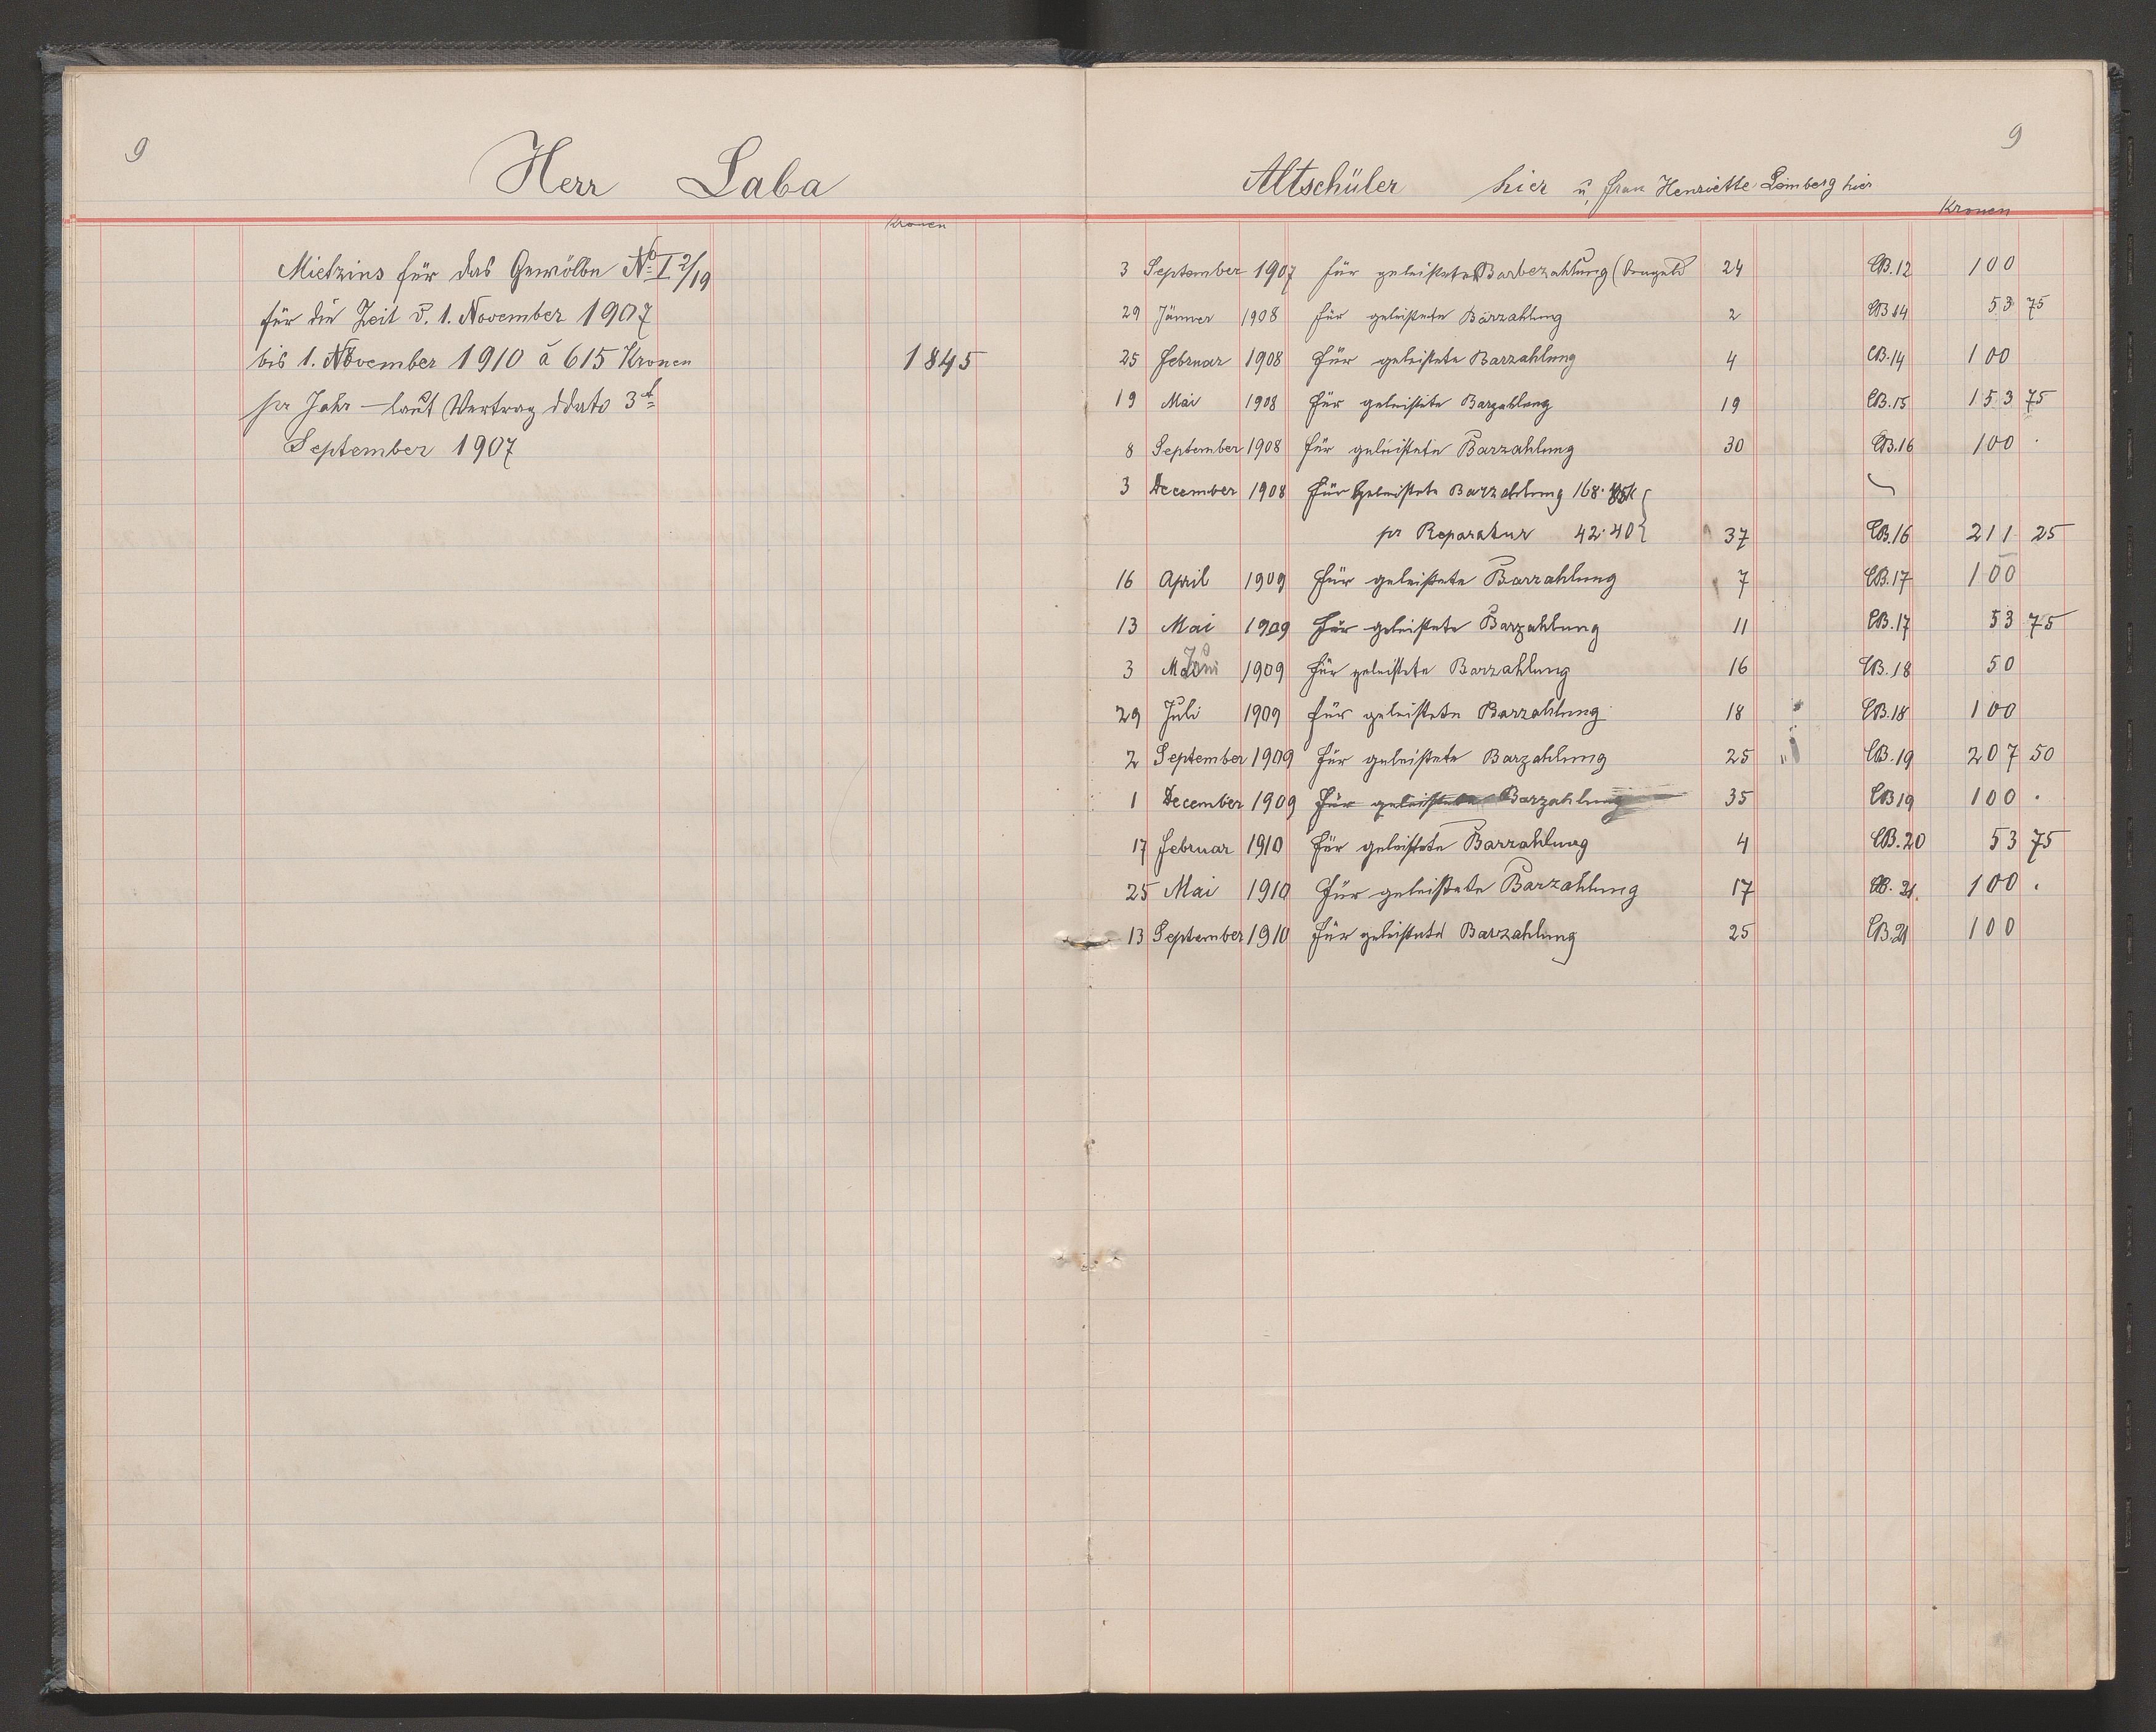 9
Herr Laba
Kronen
Mietzins für das Gewölbe No I 2/19
für die Zeit v. 1. November 1907
bis 1. November 1910 á 615 Kronen 1845
pr Jahr — laut Vertrag ddato 3t
September 1907
9
Altschüler hier u, Frau Henriette Lemberg hier
Kronen
3 September 1907 für geleistete Barbezahlung (Drangeld 24 CB.12 100
29 Jänner 1908 für geleistete Barzahlung 2 CB 14 53 75
25 Februar 1908 für geleistete Barzahlung 4 CB.14 100
19 Mai 1908 für geleistete Barzahlung 19 CB.15 153 75
8 September 1908 für geleistete Barzahlung 30 CB.16 100 .
3 December 1908 für geleistete Barzahlung 168.85K
pr Reparatur 42.40 37 CB.16 211 25
16 April 1909 für geleistete Barzahlung 7 CB.17 100
13 Mai 1909 für geleistete Barzahlung 11 CB.17 53 75
3 Juni 1909 für geleistete Barzahlung 16 CB.18 50
29 Juli 1909 für geleistete Barzahlung 18 CB.18 100
2 September 1909 für geleistete Barzahlung 25 CB.19 207 50
1 December 1909 für geleistete Barzahlung 35 CB 19 100 .
17 Februar 1910 für geleistete Barzahlung 4 CB.20 53 75
25 Mai 1910 für geleistete Barzahlung 17 CB. 21. 100 .
13 September 1910 für geleistete Barzahlung 25 CB.21 100